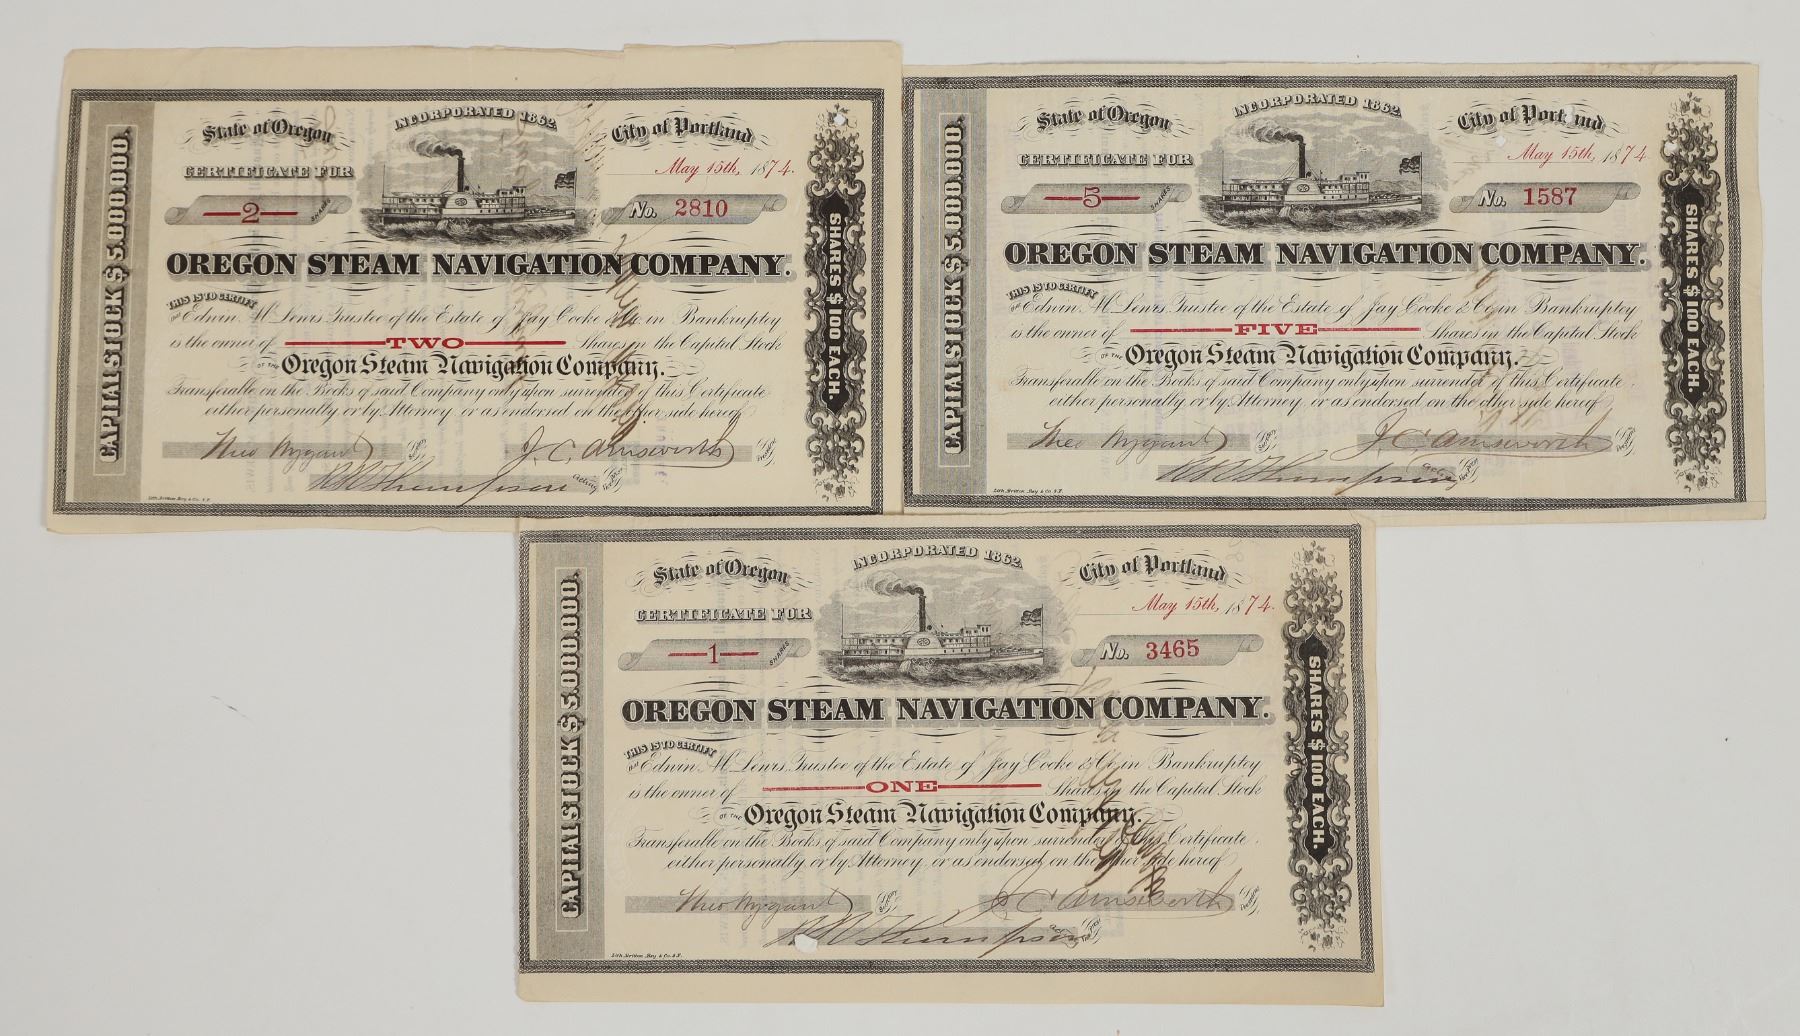 INCORPORATED 1862.
State of Oregon
City of Portland
May 15th, 1874.
CERTIFICATE FOR
2 SHARES
No. 2810
OREGON STEAM NAVIGATION COMPANY.
THIS IS TO CERTIFY
that Edwin M. Lewis, Trustee of the Estate of Jay Cooke & Co. in Bankruptcy
is the owner of TWO Shares in the Capital Stock
OF THE Oregon Steam Navigation Company.
Transferable on the Books of said Company only upon surrender of this Certificate
either personally or by Attorney, or as endorsed on the other side hereof
Theo Wygant Secy
J. C. Ainsworth Presdt.
R R Thompson Acting
Lith. Britton, Rey & Co. S.F.
CAPITAL STOCK $5.000.000.
SHARES $100 EACH.
INCORPORATED 1862.
State of Oregon
City of Portland
May 15th, 1874.
CERTIFICATE FOR
5 SHARES
No. 1587
OREGON STEAM NAVIGATION COMPANY.
THIS IS TO CERTIFY
that Edwin M. Lewis, Trustee of the Estate of Jay Cooke & Co. in Bankruptcy
is the owner of FIVE Shares in the Capital Stock
OF THE Oregon Steam Navigation Company.
Transferable on the Books of said Company only upon surrender of this Certificate.
either personally or by Attorney, or as endorsed on the other side hereof
Theo Wygant Secy
J. C. Ainsworth Presdt.
R R Thompson Acting
Lith. Britton, Rey & Co. S.F.
CAPITAL STOCK $5.000.000.
SHARES $100 EACH.
INCORPORATED 1862.
State of Oregon
City of Portland
May 15th, 1874.
CERTIFICATE FOR
1 SHARES
No. 3465
OREGON STEAM NAVIGATION COMPANY.
THIS IS TO CERTIFY
that Edwin M. Lewis, Trustee of the Estate of Jay Cooke & Co. in Bankruptcy
is the owner of ONE Shares in the Capital Stock
OF THE Oregon Steam Navigation Company.
Transferable on the Books of said Company only upon surrender of this Certificate.
either personally or by Attorney, or as endorsed on the other side hereof
Theo Wygant Secy
J. C. Ainsworth Presdt.
R R Thompson Acting
Lith. Britton, Rey & Co. S.F.
CAPITAL STOCK $5.000.000.
SHARES $100 EACH.